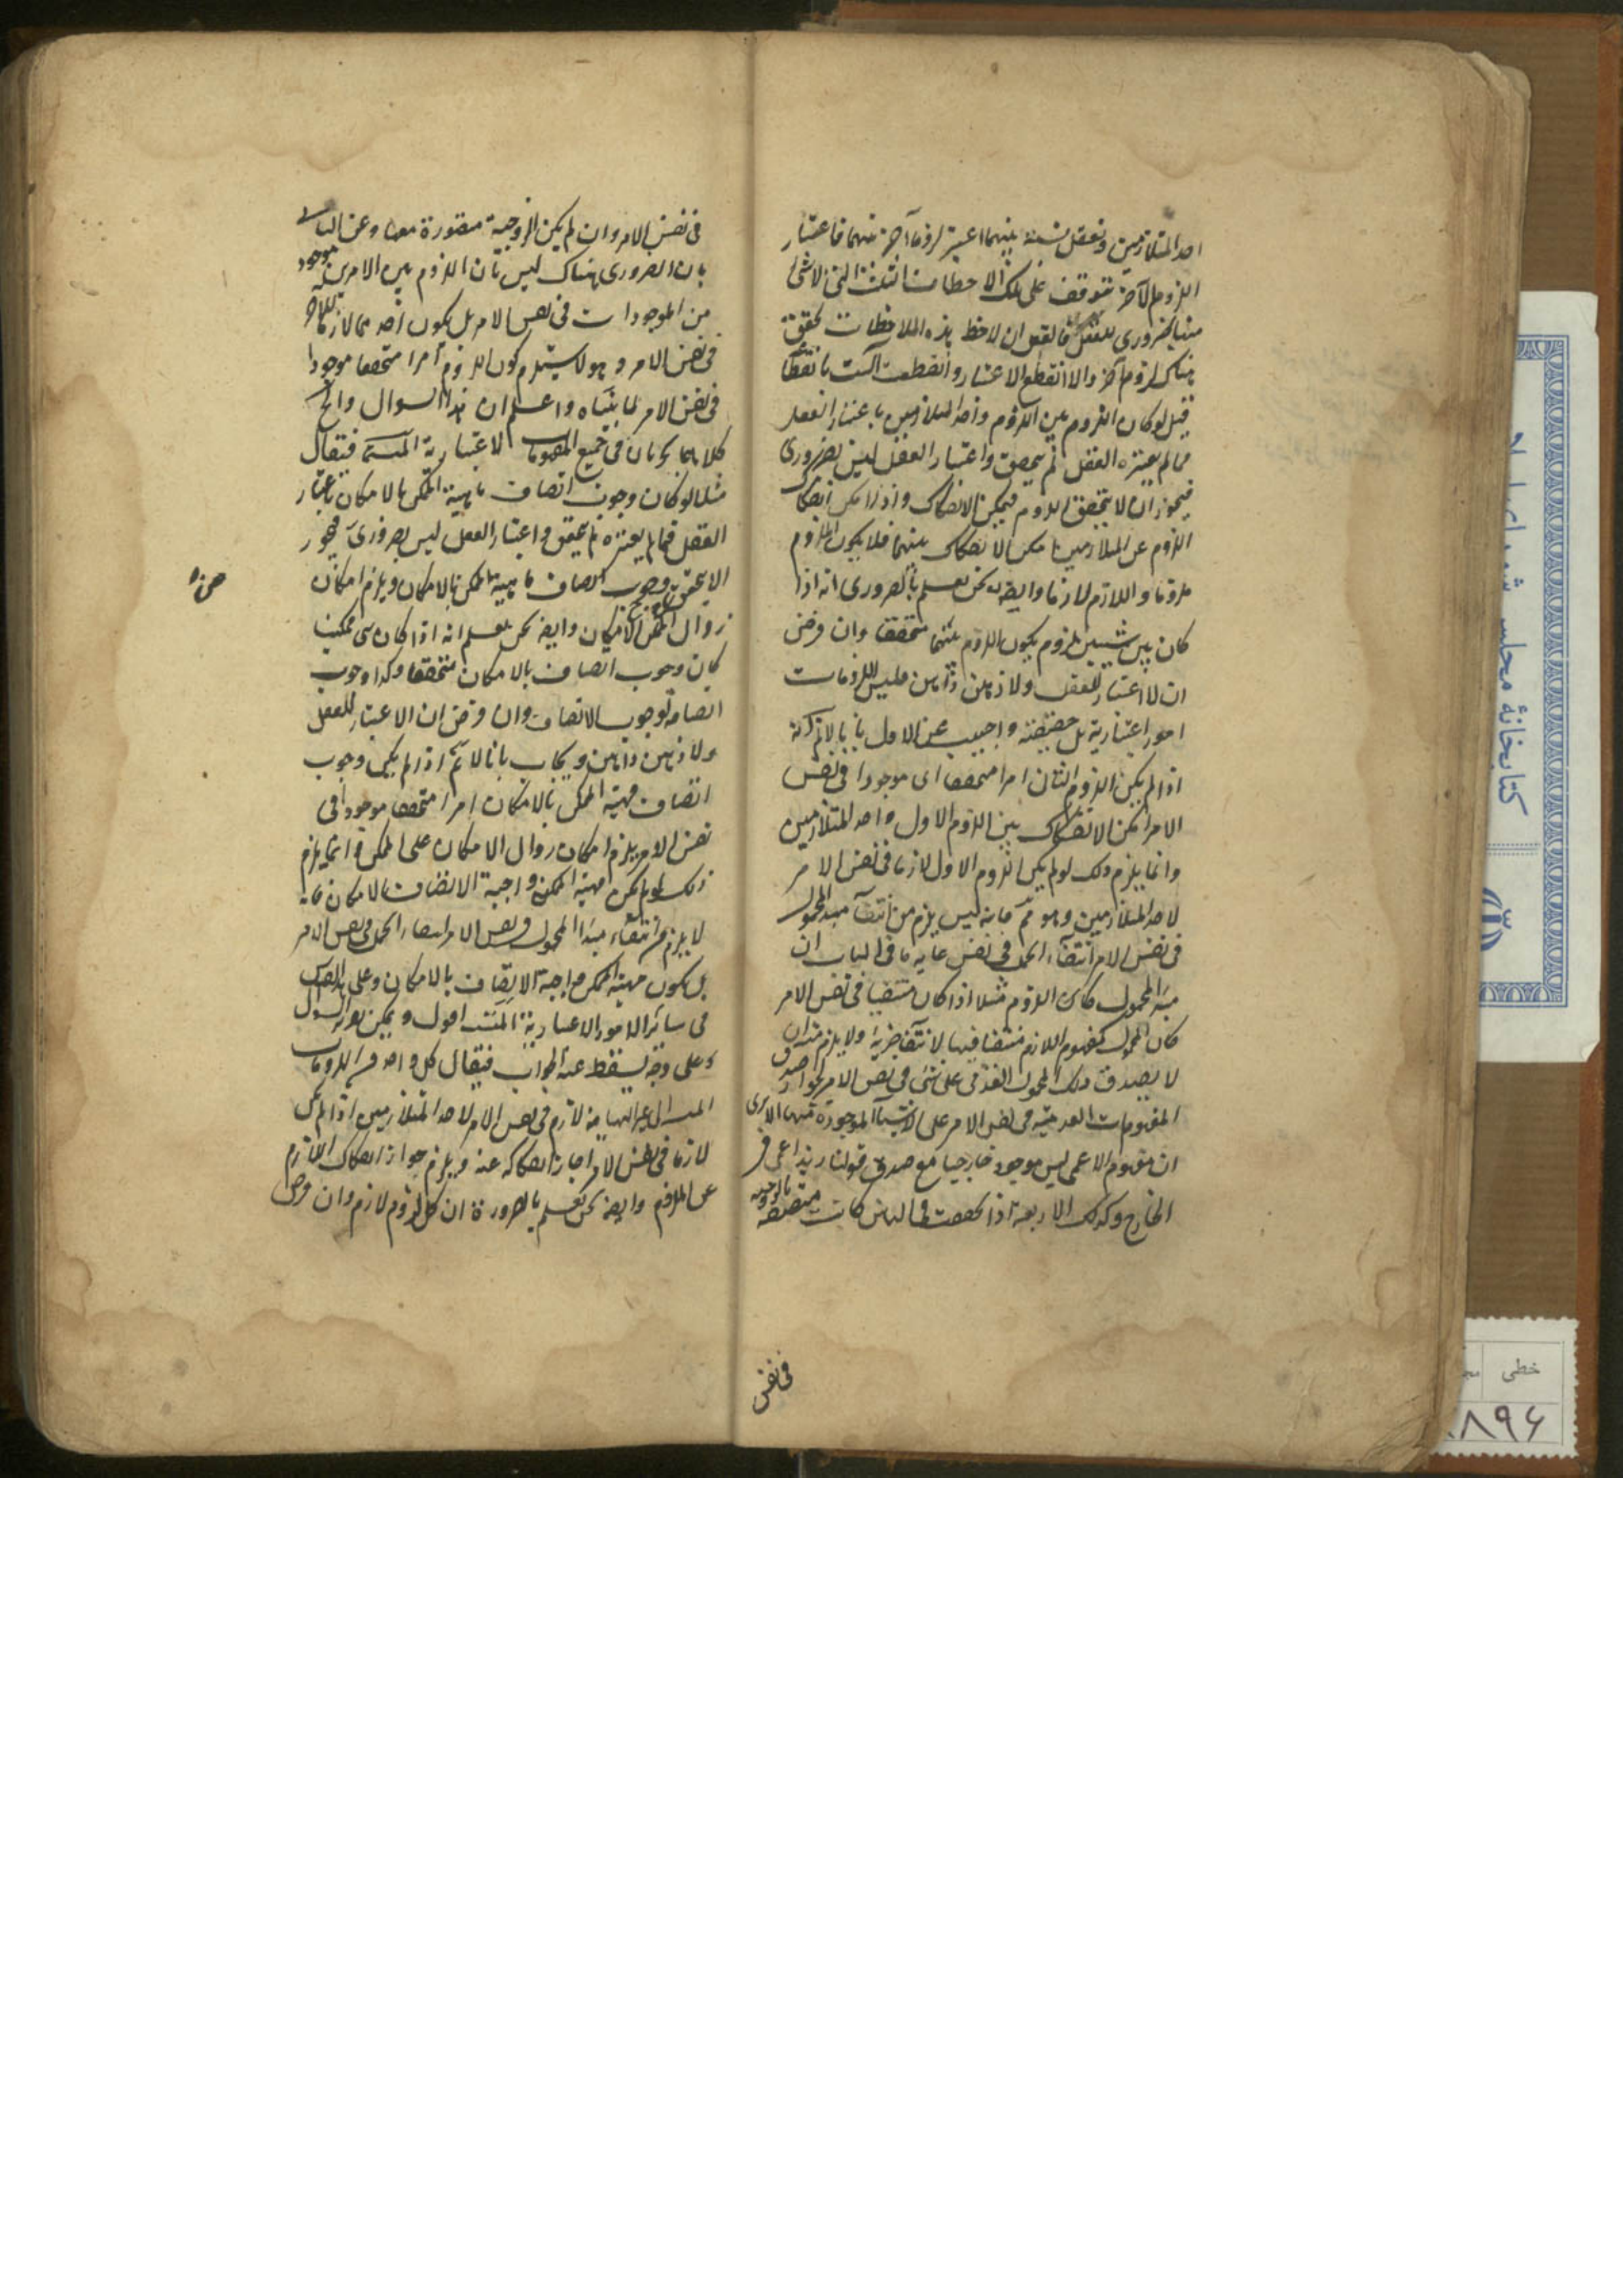 احد المتلازمين وتعقل نسبته بينهما اعتبر لزوما آخر بينهما فاعتبار
اللزوم الآخر يتوقف على تلك الملاحظات الثلث التى لا شئ
منها بضرورى للعقل فالعقل ان لاحظ هذه الملاحظات تحقق
هناك لزوم آخر والا انقطع الاعتبار وانقطعت السلسلة بانقطاعه
قيل لو كان اللزوم بين اللزوم واحد المتلازمين باعتبار العقل
فما لم يعتبره العقل لم يتحقق واعتبار العقل ليس بضرورى
فيجوز ان لا يتحقق اللزوم فيمكن الانفكاك واذا امكن انفكاك
اللزوم عن المتلازمين امكن الانفكاك بينهما فلا يكون الملزوم
ملزوما واللازم لازما وايضا نحن نعلم بالضرورى انه اذا
كان بين شيئين لزوم يكون اللزوم بينهما متحققا وان فرض
ان لا اعتبار للعقل ولا ذهن ذاهن فليس اللزومات
امورا اعتبارية بل حقيقية واجيب عن الاول بانا لا نم انه
اذا لم يكن اللزوم الثانى امرا متحققا اى موجودا فى نفس
الامر امكن الانفكاك بين اللزوم الاول واحد المتلازمين
وانما يلزم ذلك لو لم يكن اللزوم الاول لازما فى نفس الامر
لاحد المتلازمين وهو مم فانه ليس يلزم من انتفاء مبدأ المحمول
فى نفس الامر انتفاء الحمل فى نفس غاية ما فى الباب ان
مبدأ المحمول كان اللزوم مثلا اذا كان منتفيا فى نفس الامر
كان المحمول كمفهوم اللازم منتفيا فيها لانتفاء جزئه ولا يلزم منه ان
لا يصدق ذلك المحمول العدمى على شئ فى نفس الامر لجواز صدق
المفهومات العدمية فى نفس الامر على الاشياء الموجودة فيها الا ترى
ان مفهوم الاعمى ليس موجود خارجيا مع صدق قولنا زيد اعمى فى
الخارج وكذلك الاربعة اذا تحققت فى الذهن كانت متصفة بالزوجية
فى نفس
فى نفس الامر وان لم يكن الزوجية متصورة معها وعن الثانى
بان الضرورى هناك ليس بان اللزوم بين الامرين موجود
من الموجودات فى نفس الامر بل بكون احدهما لازما للآخر
فى نفس الامر وهو لا يستلزم كون اللزوم امرا متحققا موجودا
فى نفس الامر لما بيناه واعلم ان هذا السوال والجواب
كلاهما يجريان فى جميع المفهومات الاعتبارية المتسلسلة فيقال
مثلا لو كان وجوب اتصاف ماهية الممكن بالامكان باعتبار
العقل فما لم يعتبره لم يتحقق واعتبار العقل ليس بضرورى فيجوز
ان لا يتحقق وجوب اتصاف ماهية الممكن بالامكان ويلزم امكان
زوال الامكان وايضا نحن نعلم انه اذا كان شئ ممكنا
كان وجوب اتصافه بالامكان متحققا وكذا وجوب
اتصافه بوجوب الاتصاف وان فرض ان لا اعتبار للعقل
ولا ذهن ذاهن ويجاب بانا لا نم انه اذا لم يكن وجوب
اتصاف مهية الممكن بالامكان امرا متحققا موجودا فى
نفس الامر يلزم امكان زوال الامكان على الممكن وانما يلزم
ذلك لو لم يكن مهية الممكن واجبة الاتصاف بالامكان فانه
لا يلزم من انتفاء مبدأ المحمول فى نفس الامر انتفاء الحمل فى نفس الامر
بل يكون مهية الممكن واجبة الاتصاف بالامكان وعلى هذا القياس
فى سائر الامور الاعتبارية المتسلسلة اقول ويمكن تقرير السوال
على وجه يسقط عنه الجواب فيقال كل واحد من اللزومات
المتسلسلة الى غير النهاية لازم فى نفس الامر لاحد المتلازمين اذ لو لم يكن
لازما فى نفس الامر جاز انفكاكه عنه ويلزم جواز انفكاك اللازم
عن الملزوم وايضا نحن نعلم بالضرورة ان كل لزوم لازم وان فرض
كتابخانهٔ مجلس شورای
خطى
۸۹۶